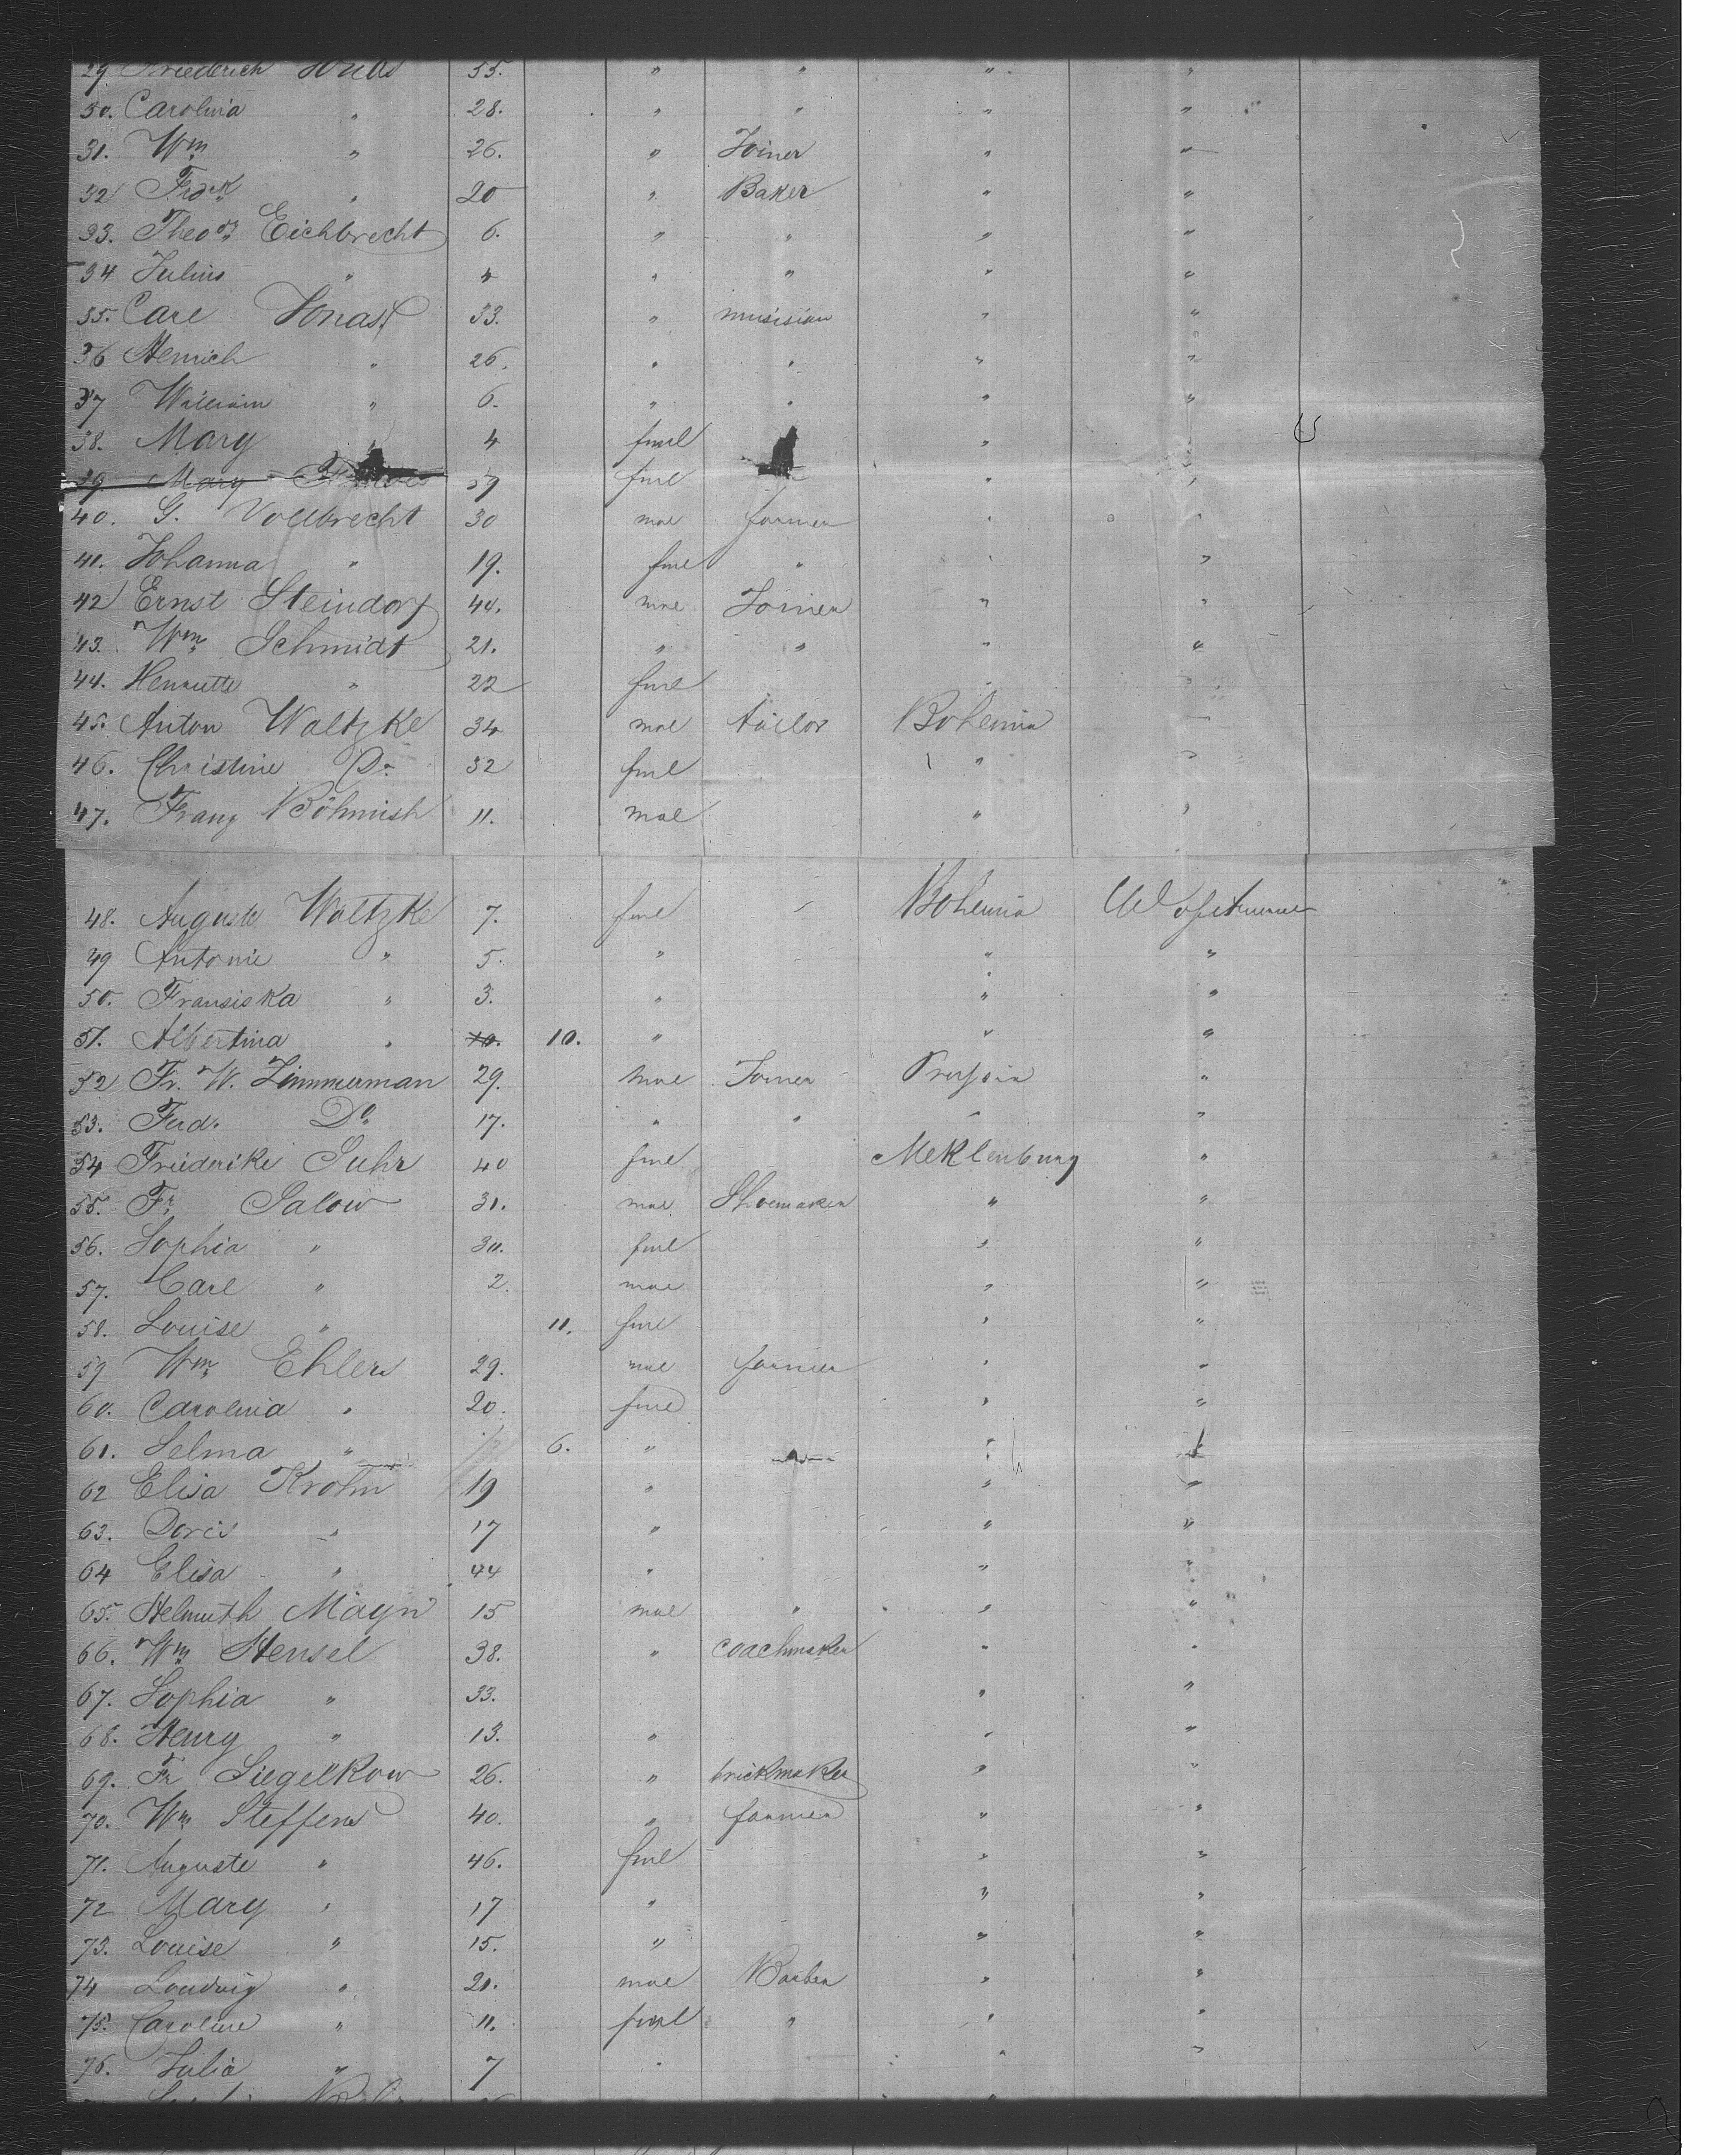 29 Friederich Jonas 55. " " " "
30. Carolina " 28. " " " "
31. Wm " 26. " Joiner " "
32 Fredk " 20 " Baker " "
33. Theodr Eichbrecht 6. " " " "
34 Julius " 4 " " " "
35. Carl Jonas 33. " musisian " "
36 Henrich " 26. " " " "
37 William " 6. " " " "
38. Mary 4 fml " "
39 Mary 57 fml " "
40. G. Vollbrecht 30 mal farmer " "
41. Johanna " 19. fml " " "
42 Ernst Steindorf 44. mal Joiner " "
43. Wm Schmidt 21. " " " "
44. Henriette " 22 fml " "
45. Anton Waltzke 34 mal tailor Bohemia "
46. Christine Do 32 fml " "
47. Franz Böhmish 11. mal " "
48. Auguste Waltzke 7. fml Bohemia
49 Antonie " 5. " " "
50. Fransiska " 3. " " "
51. Albertina " 10. 10. " " "
52 Fr. W. Zimmerman 29. mal Joiner Prussia "
53. Ferd. Do 17. " " " "
54 Friederike Suhr 40 fml Meklenburg "
55. Fr Salow 31. mal Shoemaker " "
56. Sophia " 30. fml " "
57. Carl " 2. mal " "
58. Louise " 11. fml " "
59 Wm Ehlers 29. mal farmer " "
60. Carolina " 20. fml " "
61. Selma " 6. " " "
62 Elisa Krohn 19 " " "
63. Doris " 17 " " "
64 Elisa " 44 " " "
65. Helmuth Mayn 15 mal " " "
66. Wm Hensel 38. " coachmaker " "
67. Sophia " 33. " "
68. Henry " 13. " " "
69. Fr Siegelkow 26. " brickmaker " "
70. Wm Steffens 40. " farmer " "
71. Auguste " 46. fml " "
72 Mary " 17 " " "
73. Louise " 15. " " "
74 Loudwig " 20. mal Barber " "
75. Caroline " 11. fml " " "
76. Julia " 7 " " "